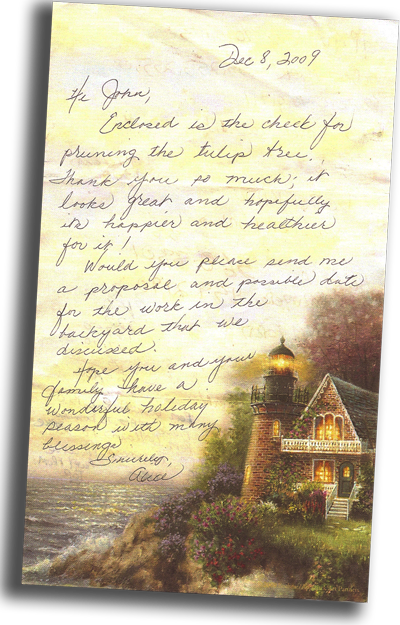 Dec 8, 2009
Hi John,
Enclosed is the check for
pruning the tulip tree.
Thank you so much; it
looks great and hopefully
its happier and healthier
for it!
Would you please send me
a proposal and possible date
for the work in the
backyard that we
discussed.
Hope you and your
family have a
wonderful holiday
season with many
blessings
Sincerely,